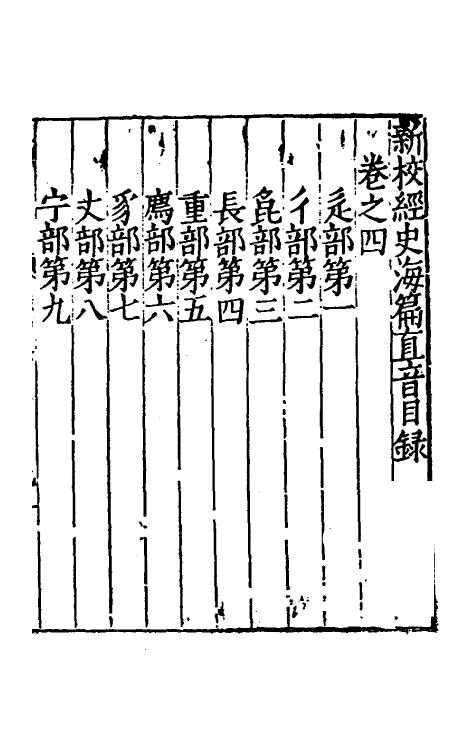 新校經史海篇直音目録
卷之四
辵部第一
彳部第二
㲋部第三
長部第四
重部第五
廌部第六
豸部第七
丈部第八
宁部第九